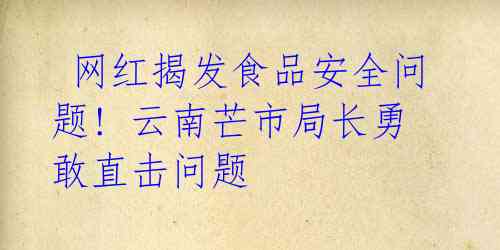 网红揭发食品安全问
题! 云南芒市局长勇
敢直击问题